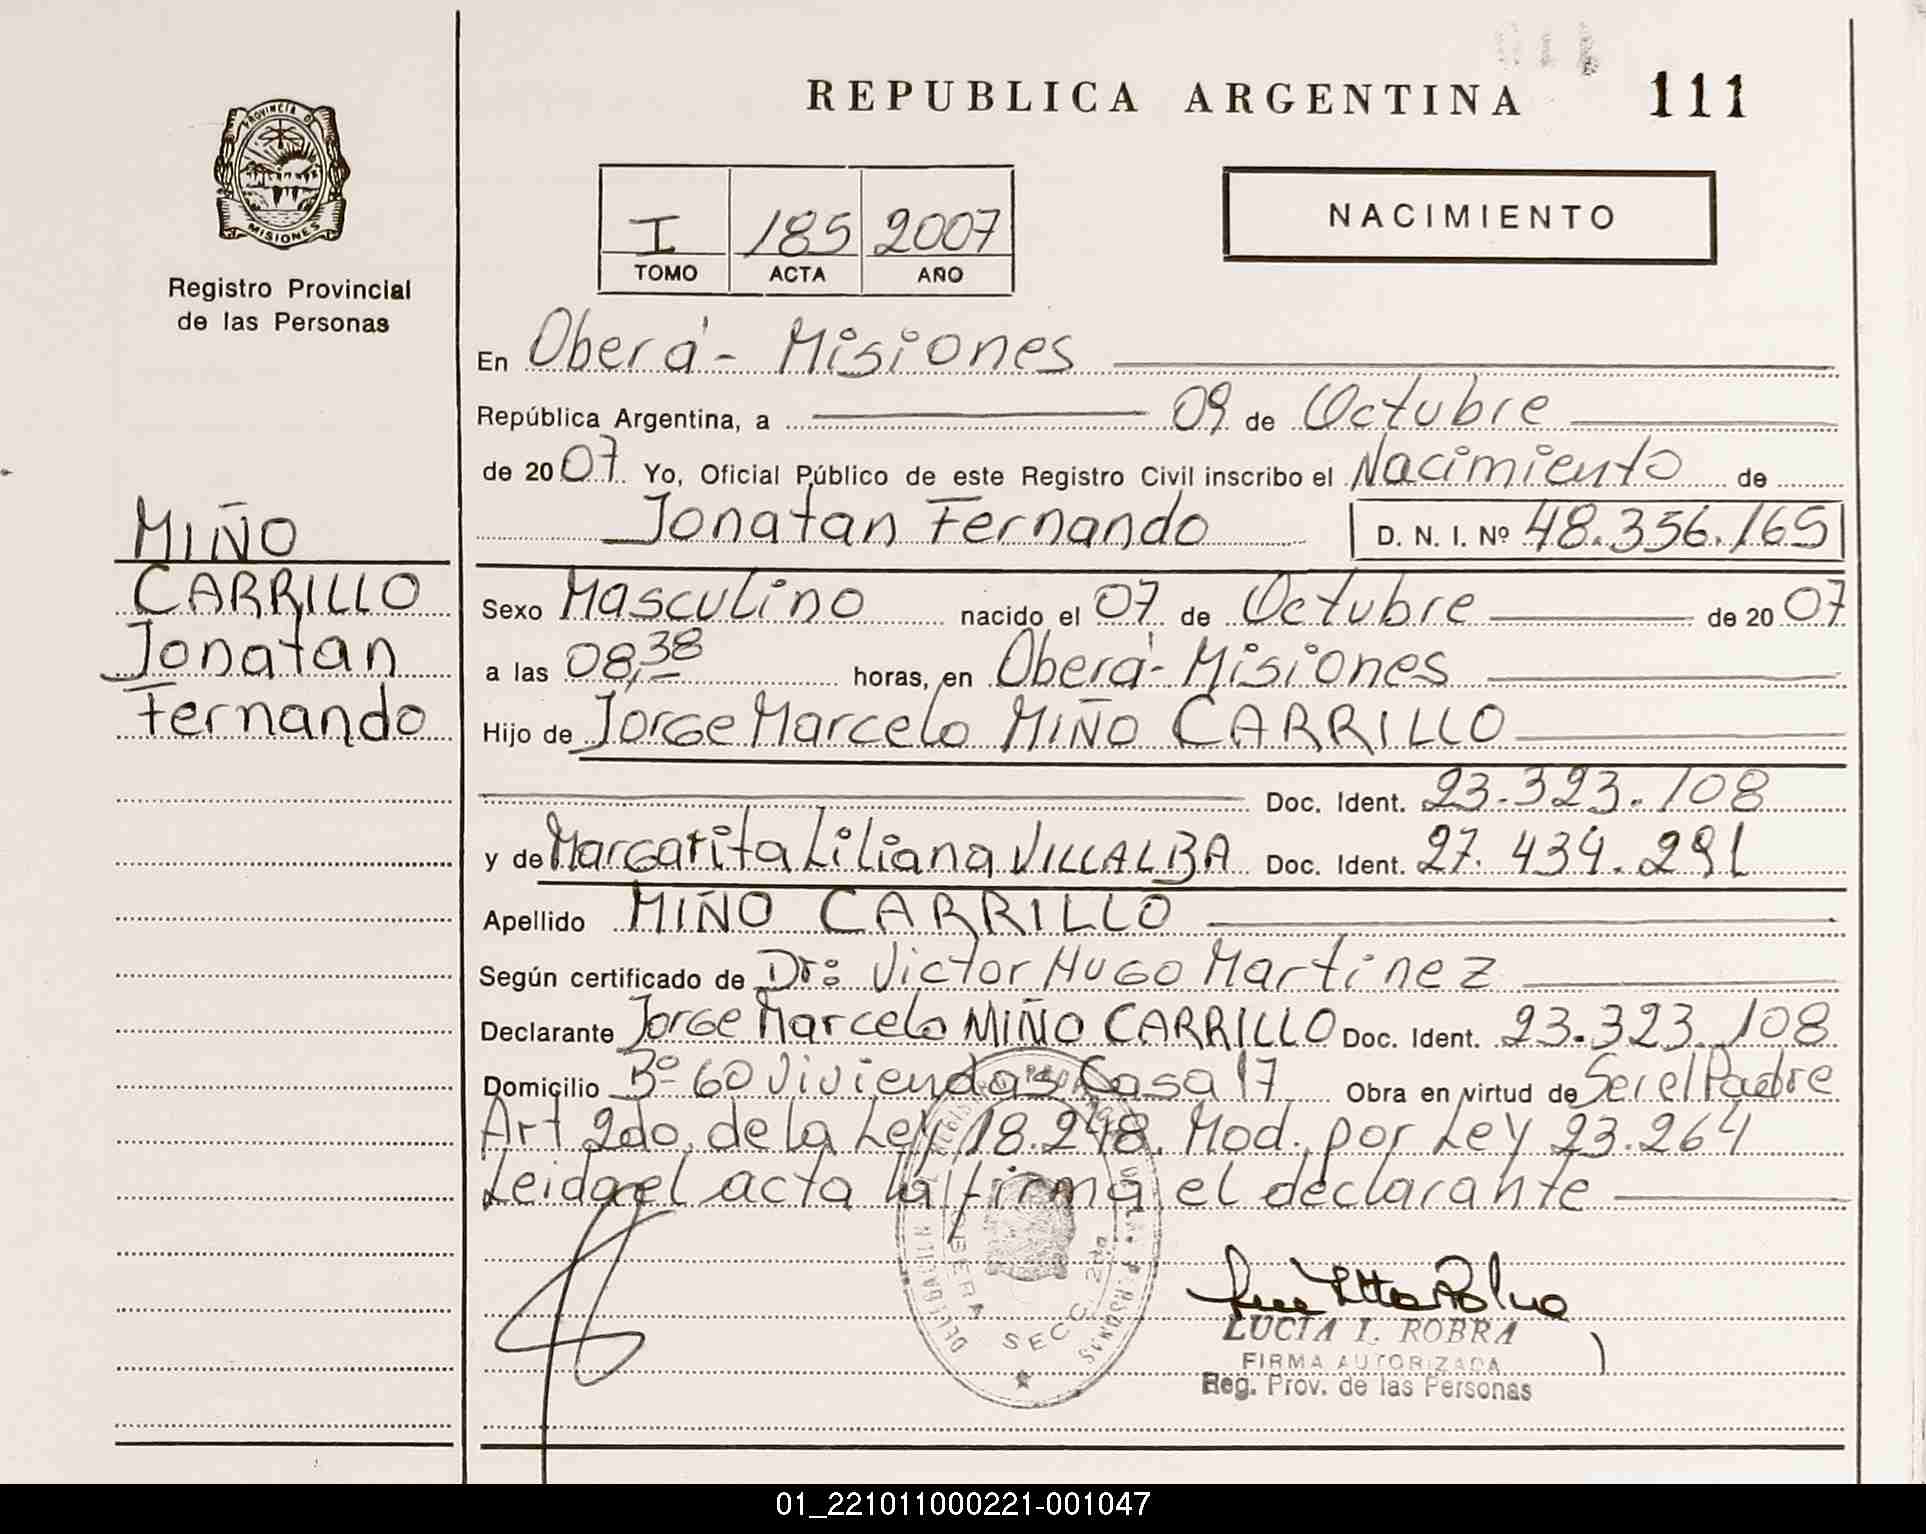 REPUBLICA ARGENTINA 111
PROVINCIA DE
MISIONES
Registro Provincial
de las Personas
I 185 2007
TOMO ACTA AÑO
NACIMIENTO
En Oberá - Misiones
República Argentina, a 09 de Octubre
de 2007 Yo, Oficial Público de este Registro Civil inscribo el Nacimiento de
Jonatan Fernando D. N. I. Nº 48.356.165
MIÑO
CARRILLO
Jonatan
Fernando
Sexo Masculino nacido el 07 de Octubre de 2007
a las 08,38 horas, en Oberá - Misiones
Hijo de Jorge Marcelo MIÑO CARRILLO
Doc. Ident. 23.323.108
y de Margarita Liliana VILLALBA Doc. Ident. 27.434.291
Apellido MIÑO CARRILLO
Según certificado de Dr: Victor Hugo Martinez
Declarante Jorge Marcelo MIÑO CARRILLO Doc. Ident. 23.323.108
Domicilio Bº 60 Viviendas Casa 17 Obra en virtud de Ser el Padre
Art 2do. de la Ley 18.248. Mod. por Ley 23.264
Leida el acta la firma el declarante
OBERA SECC. 2da
LUCIA I. ROBRA
FIRMA AUTORIZADA
Reg. Prov. de las Personas
01_221011000221-001047